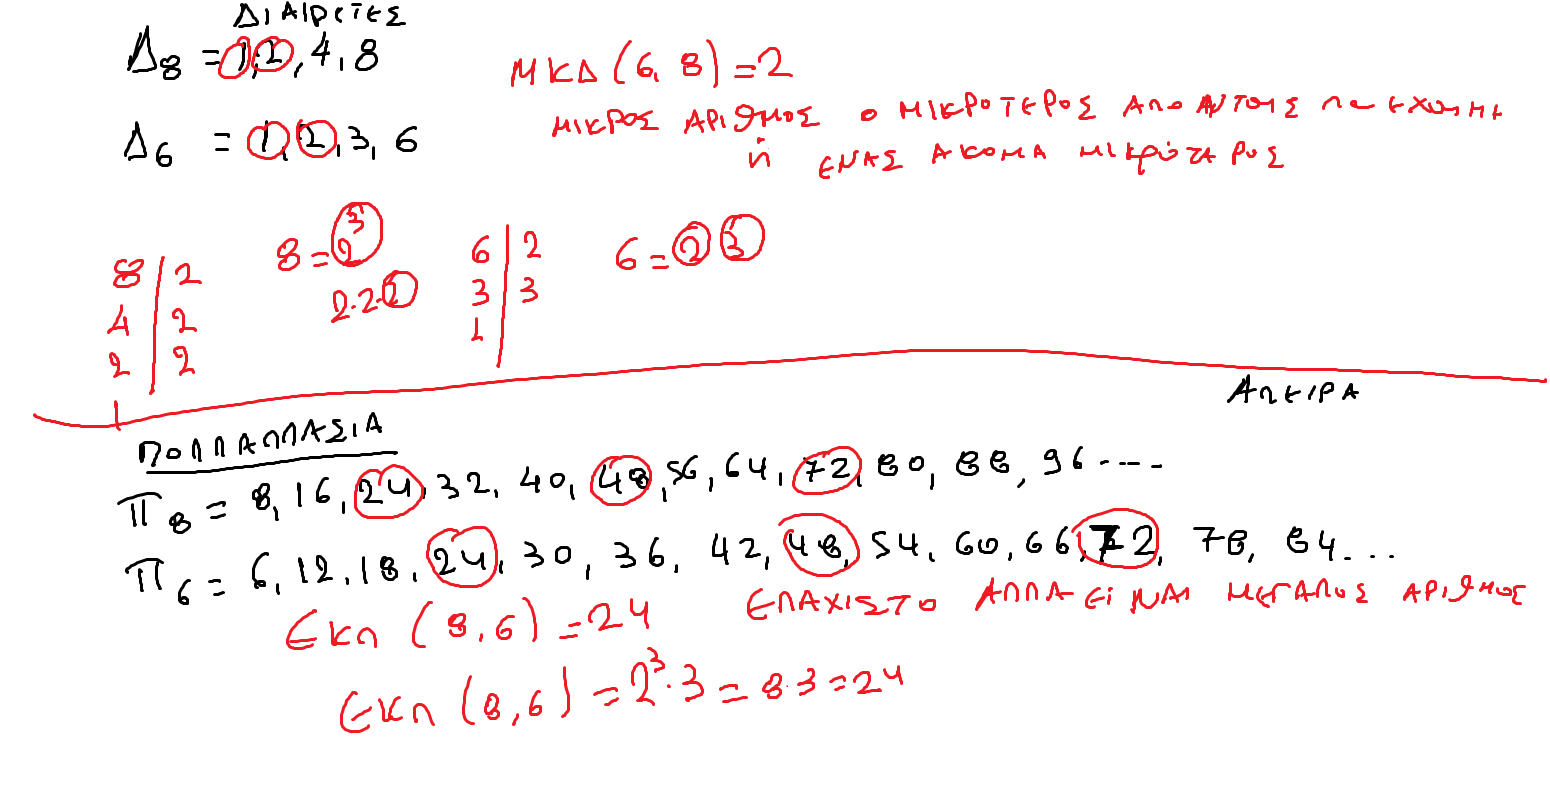 ΔΙΑΙΡΕΤΕΣ
Δ8 = 1, 2, 4, 8
ΜΚΔ (6, 8) = 2
ΜΙΚΡΟΣ ΑΡΙΘΜΟΣ Ο ΜΙΚΡΟΤΕΡΟΣ ΑΠΟ ΑΥΤΟΥΣ ΠΟΥ ΕΧΟΥΜΕ
Δ6 = 1, 2, 3, 6
ή ΕΝΑΣ ΑΚΟΜΑ ΜΙΚΡΟΤΕΡΟΣ
8 | 2
4 | 2
2 | 2
1
8 = 2³
2·2·2
6 | 2
3 | 3
1
6 = 2 3
ΑΠΕΙΡΑ
ΠΟΛΛΑΠΛΑΣΙΑ
Π8 = 8, 16, 24, 32, 40, 48, 56, 64, 72, 80, 88, 96 ....
Π6 = 6, 12, 18, 24, 30, 36, 42, 48, 54, 60, 66, 72, 78, 84...
ΕΛΑΧΙΣΤΟ ΑΛΛΑ ΕΙΝΑΙ ΜΕΓΑΛΟΣ ΑΡΙΘΜΟΣ
ΕΚΠ (8, 6) = 24
ΕΚΠ (8, 6) = 2³·3 = 8·3 = 24